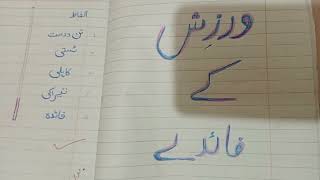 ورزش
کے
فائدے
الفاظ
تن درست
سُستی
کاہلی
تیراکی
فائدہ